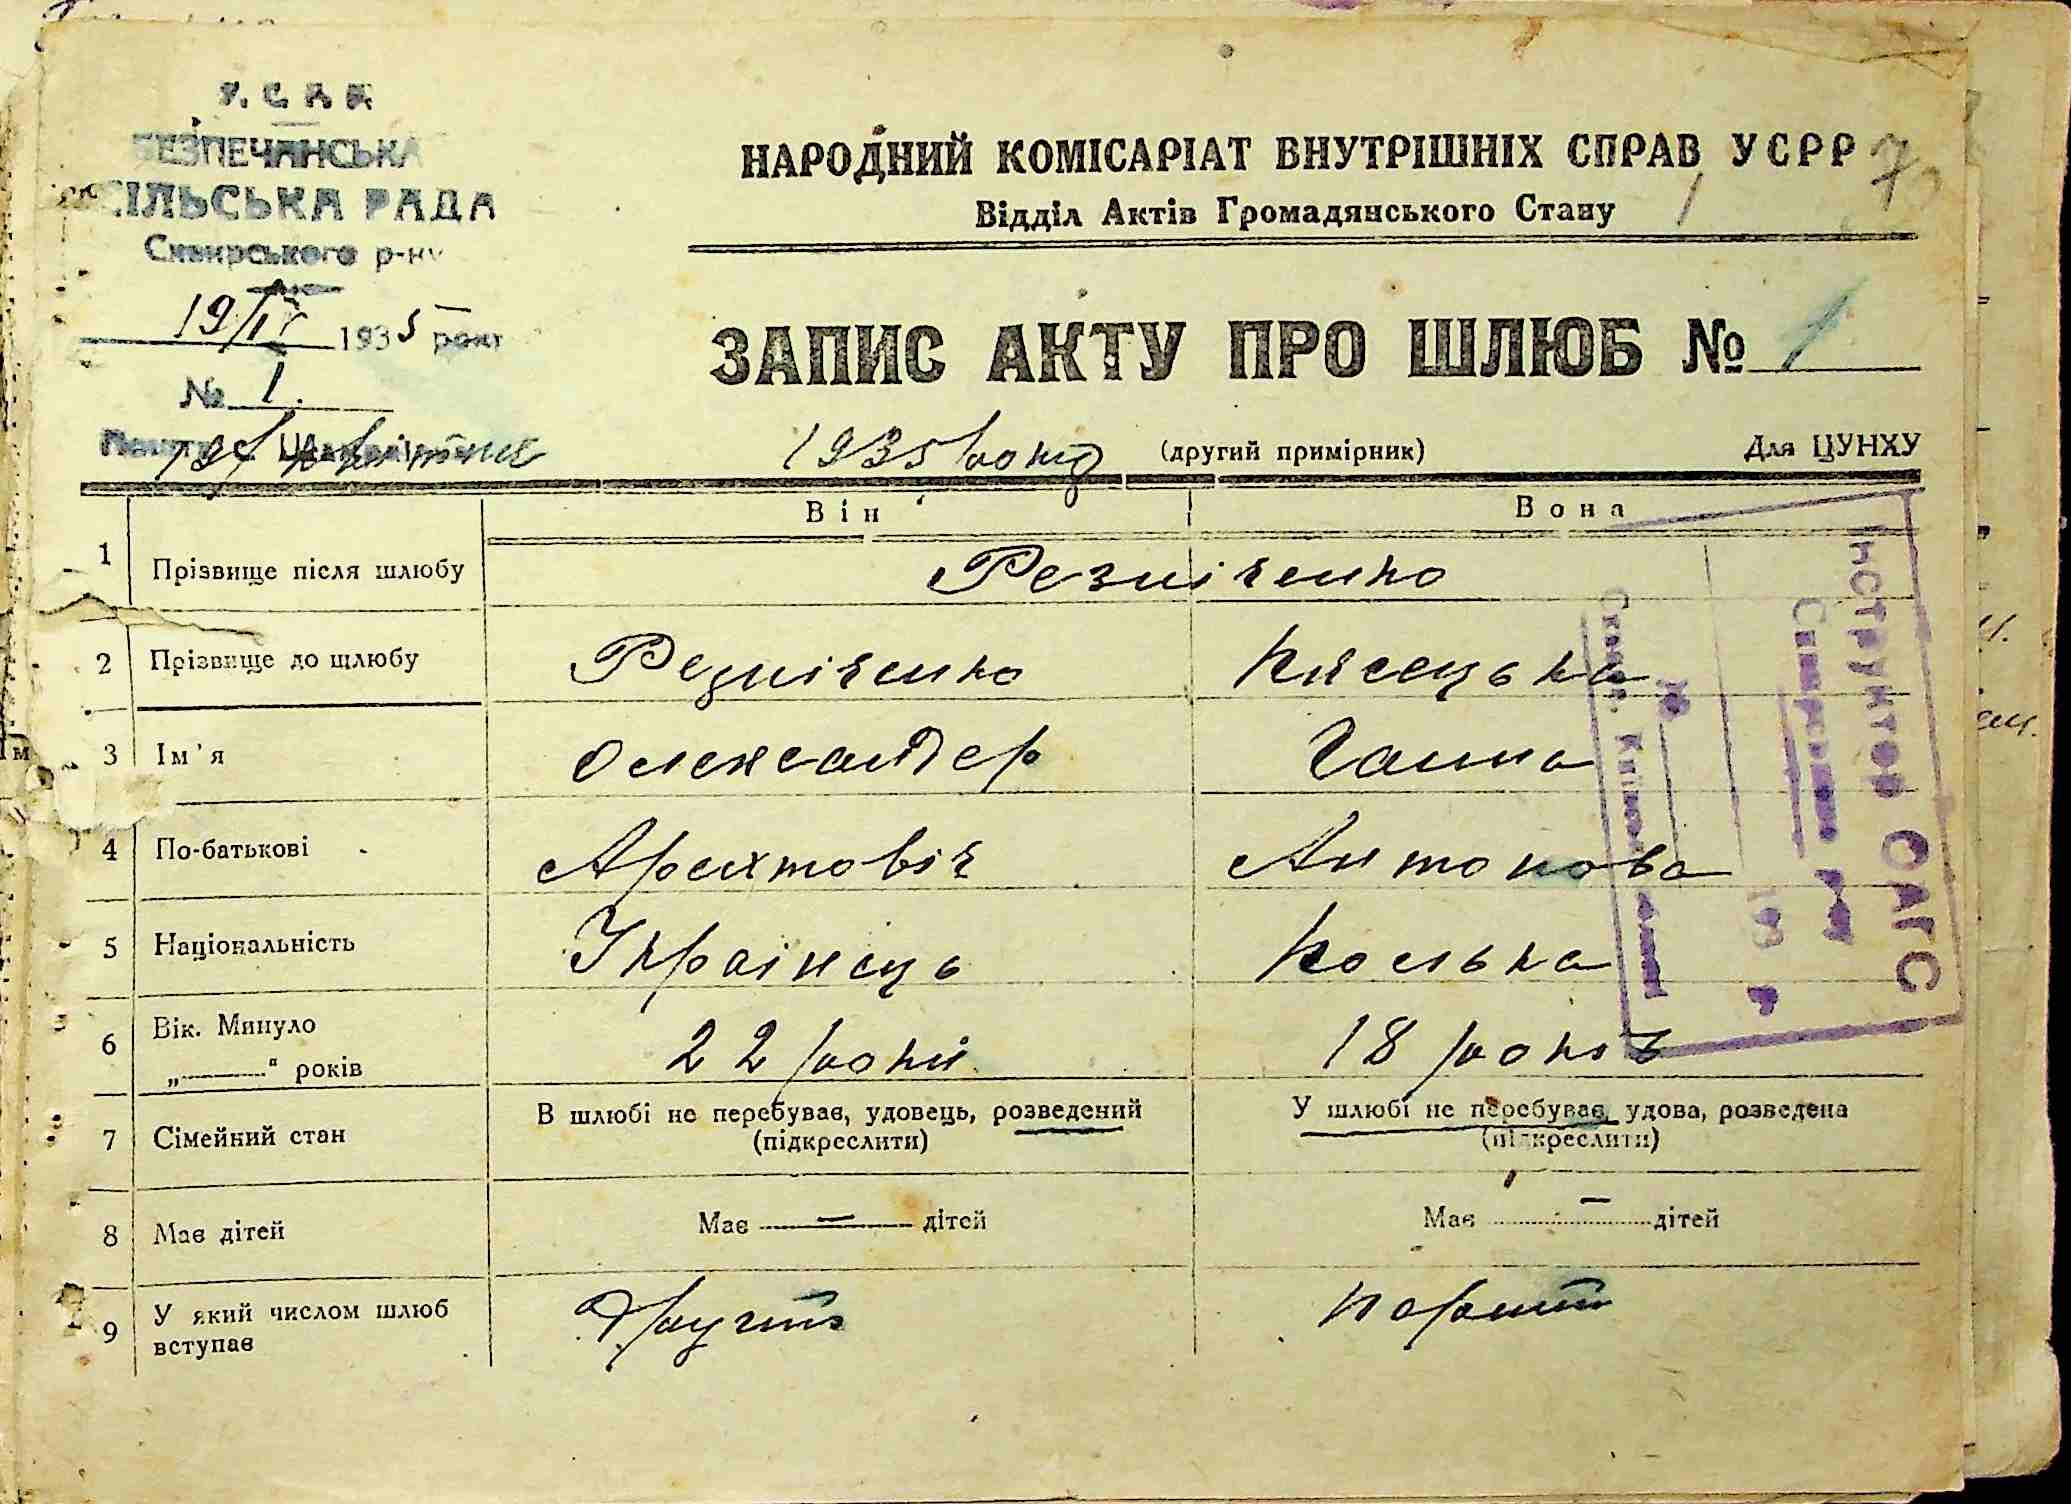 У.С.Р.Р.
БЕЗПЕЧАНСЬКА
СІЛЬСЬКА РАДА
Сквирського р-ну
19/IV 1935 року
№ 1.
НАРОДНИЙ КОМІСАРІАТ ВНУТРІШНІХ СПРАВ УСРР
Відділ Актів Громадянського Стану
ЗАПИС АКТУ ПРО ШЛЮБ № 1
19/ квітня 1935 року (другий примірник) Для ЦУНХУ
Він Вона
1 Прізвище після шлюбу Резніченко
2 Прізвище до шлюбу Резніченко
3 Ім'я Олександер Ганна
4 По-батькові Антонова
5 Національність Українець Полька
6 Вік. Минуло 22 роки 18 років
„———" років
7 Сімейний стан В шлюбі не перебував, удовець, розведений У шлюбі не перебував, удова, розведена
(підкреслити) (підкреслити)
8 Має дітей Має — дітей Має — дітей
9 У який числом шлюб Другий Перший
вступає
Інструктор ОАГС
Сквирського р-ну
193 р
№
Сквира, Київської області